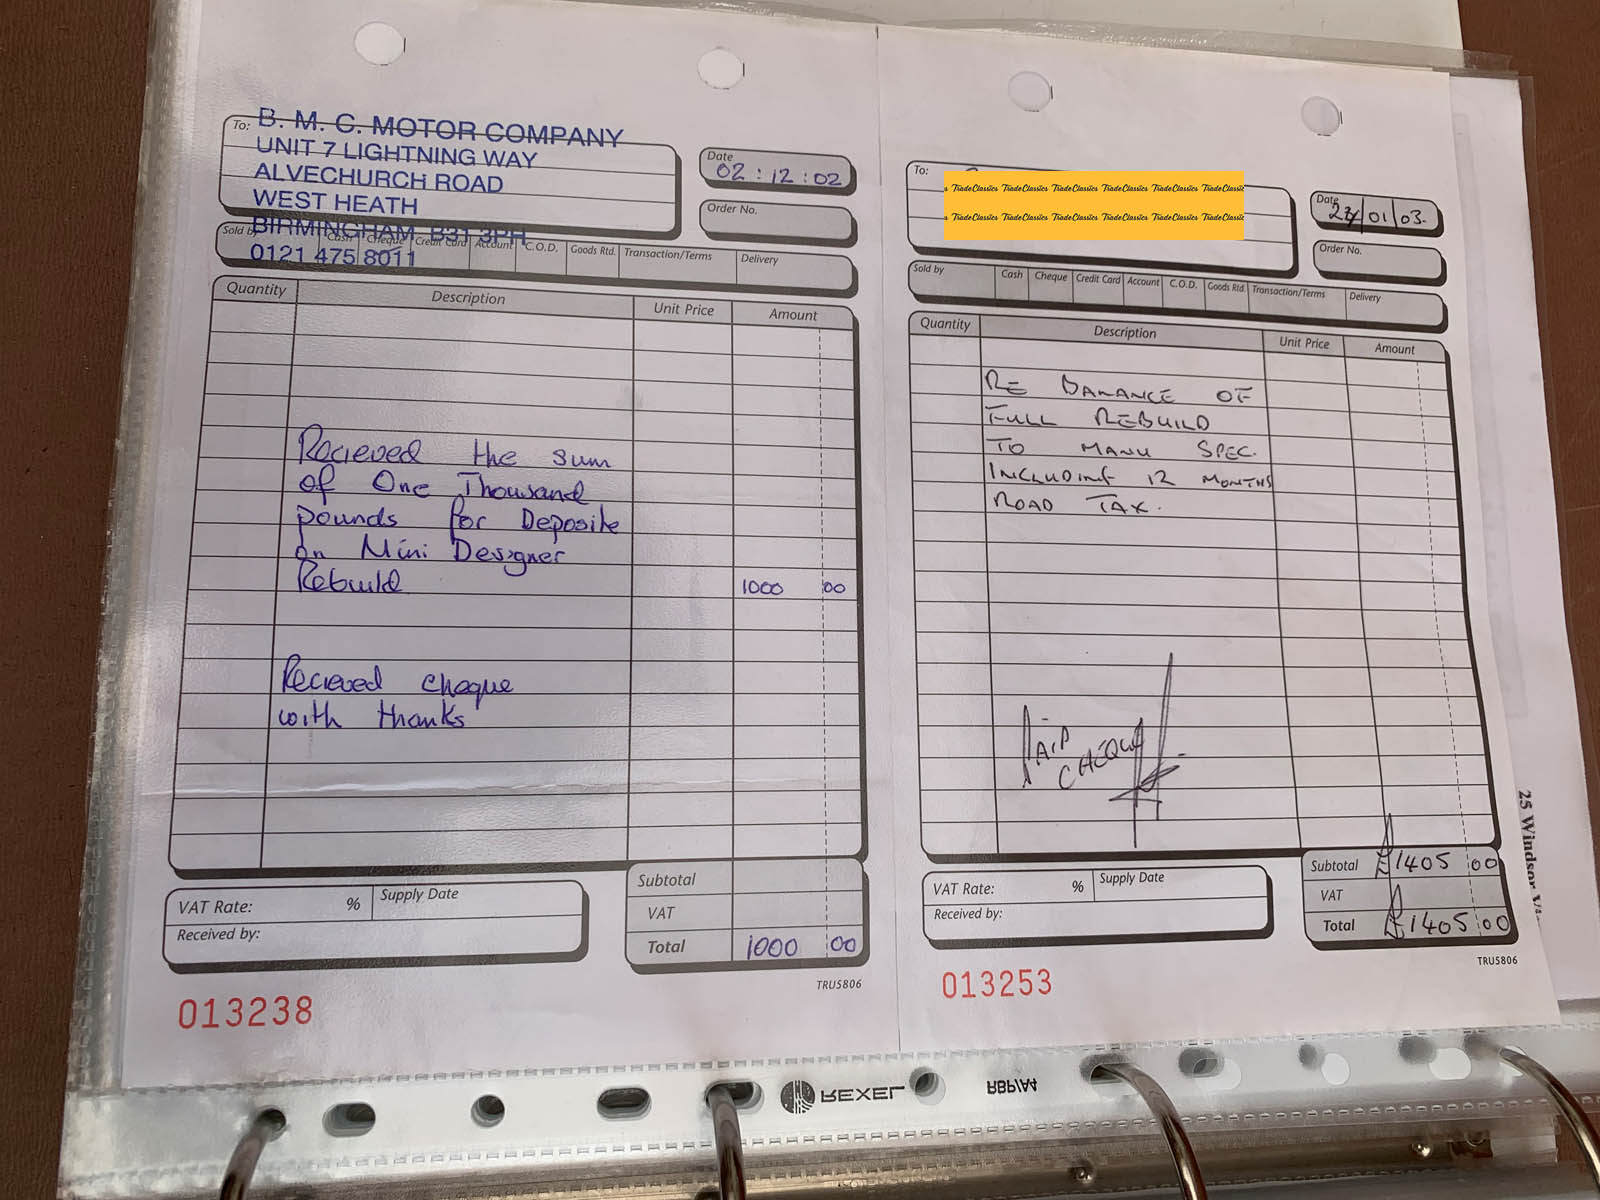 To: B. M. C. MOTOR COMPANY
UNIT 7 LIGHTNING WAY
ALVECHURCH ROAD
WEST HEATH
BIRMINGHAM B31 3PH
0121 475 8011
Date
02 : 12 : 02
Order No.
Sold by Cash Cheque Credit Card Account C.O.D. Goods Rtd. Transaction/Terms Delivery
Quantity Description Unit Price Amount
Recieved the sum
of One Thousand
pounds for Deposite
on Mini Designer
Rebuild 1000 00
Recieved cheque
with thanks
VAT Rate: % Supply Date
Received by:
Subtotal
VAT
Total 1000 00
TRU5806
013238
To:
TradeClassics TradeClassics TradeClassics TradeClassics TradeClassics TradeClassics
TradeClassics TradeClassics TradeClassics TradeClassics TradeClassics TradeClassics
Date
/01/03.
Order No.
Sold by Cash Cheque Credit Card Account C.O.D. Goods Rtd. Transaction/Terms Delivery
Quantity Description Unit Price Amount
RE BALANCE OF
FULL REBUILD
TO MANU SPEC.
INCLUDING 12 MONTHS
ROAD TAX.
PAID
CHEQUE
VAT Rate: % Supply Date
Received by:
Subtotal £1405 00
VAT
Total £1405 00
TRU5806
013253
25 Windsor
REXEL
RBP/A4